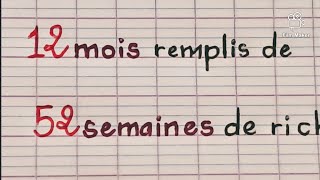 12 mois remplis de
52 semaines de rich